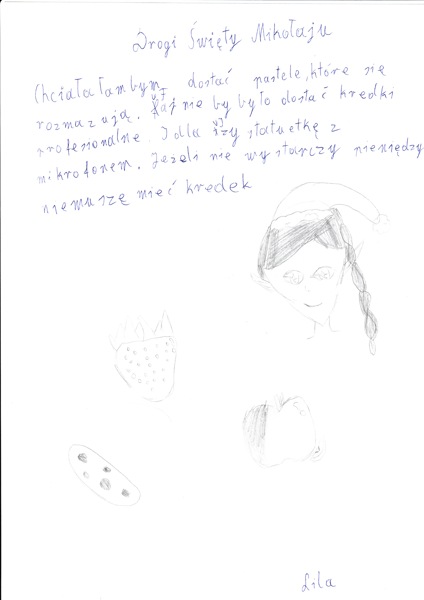 Drogi Święty Mikołaju
Chciałałambym dostać pastele, które się
rozmazują. Fajnie by było dostać kredki
profesionalne. I dla statuetkę z
mikrofonem. Jeżeli nie wystarczy pieniędzy
niemuszę mieć kredek
Lila